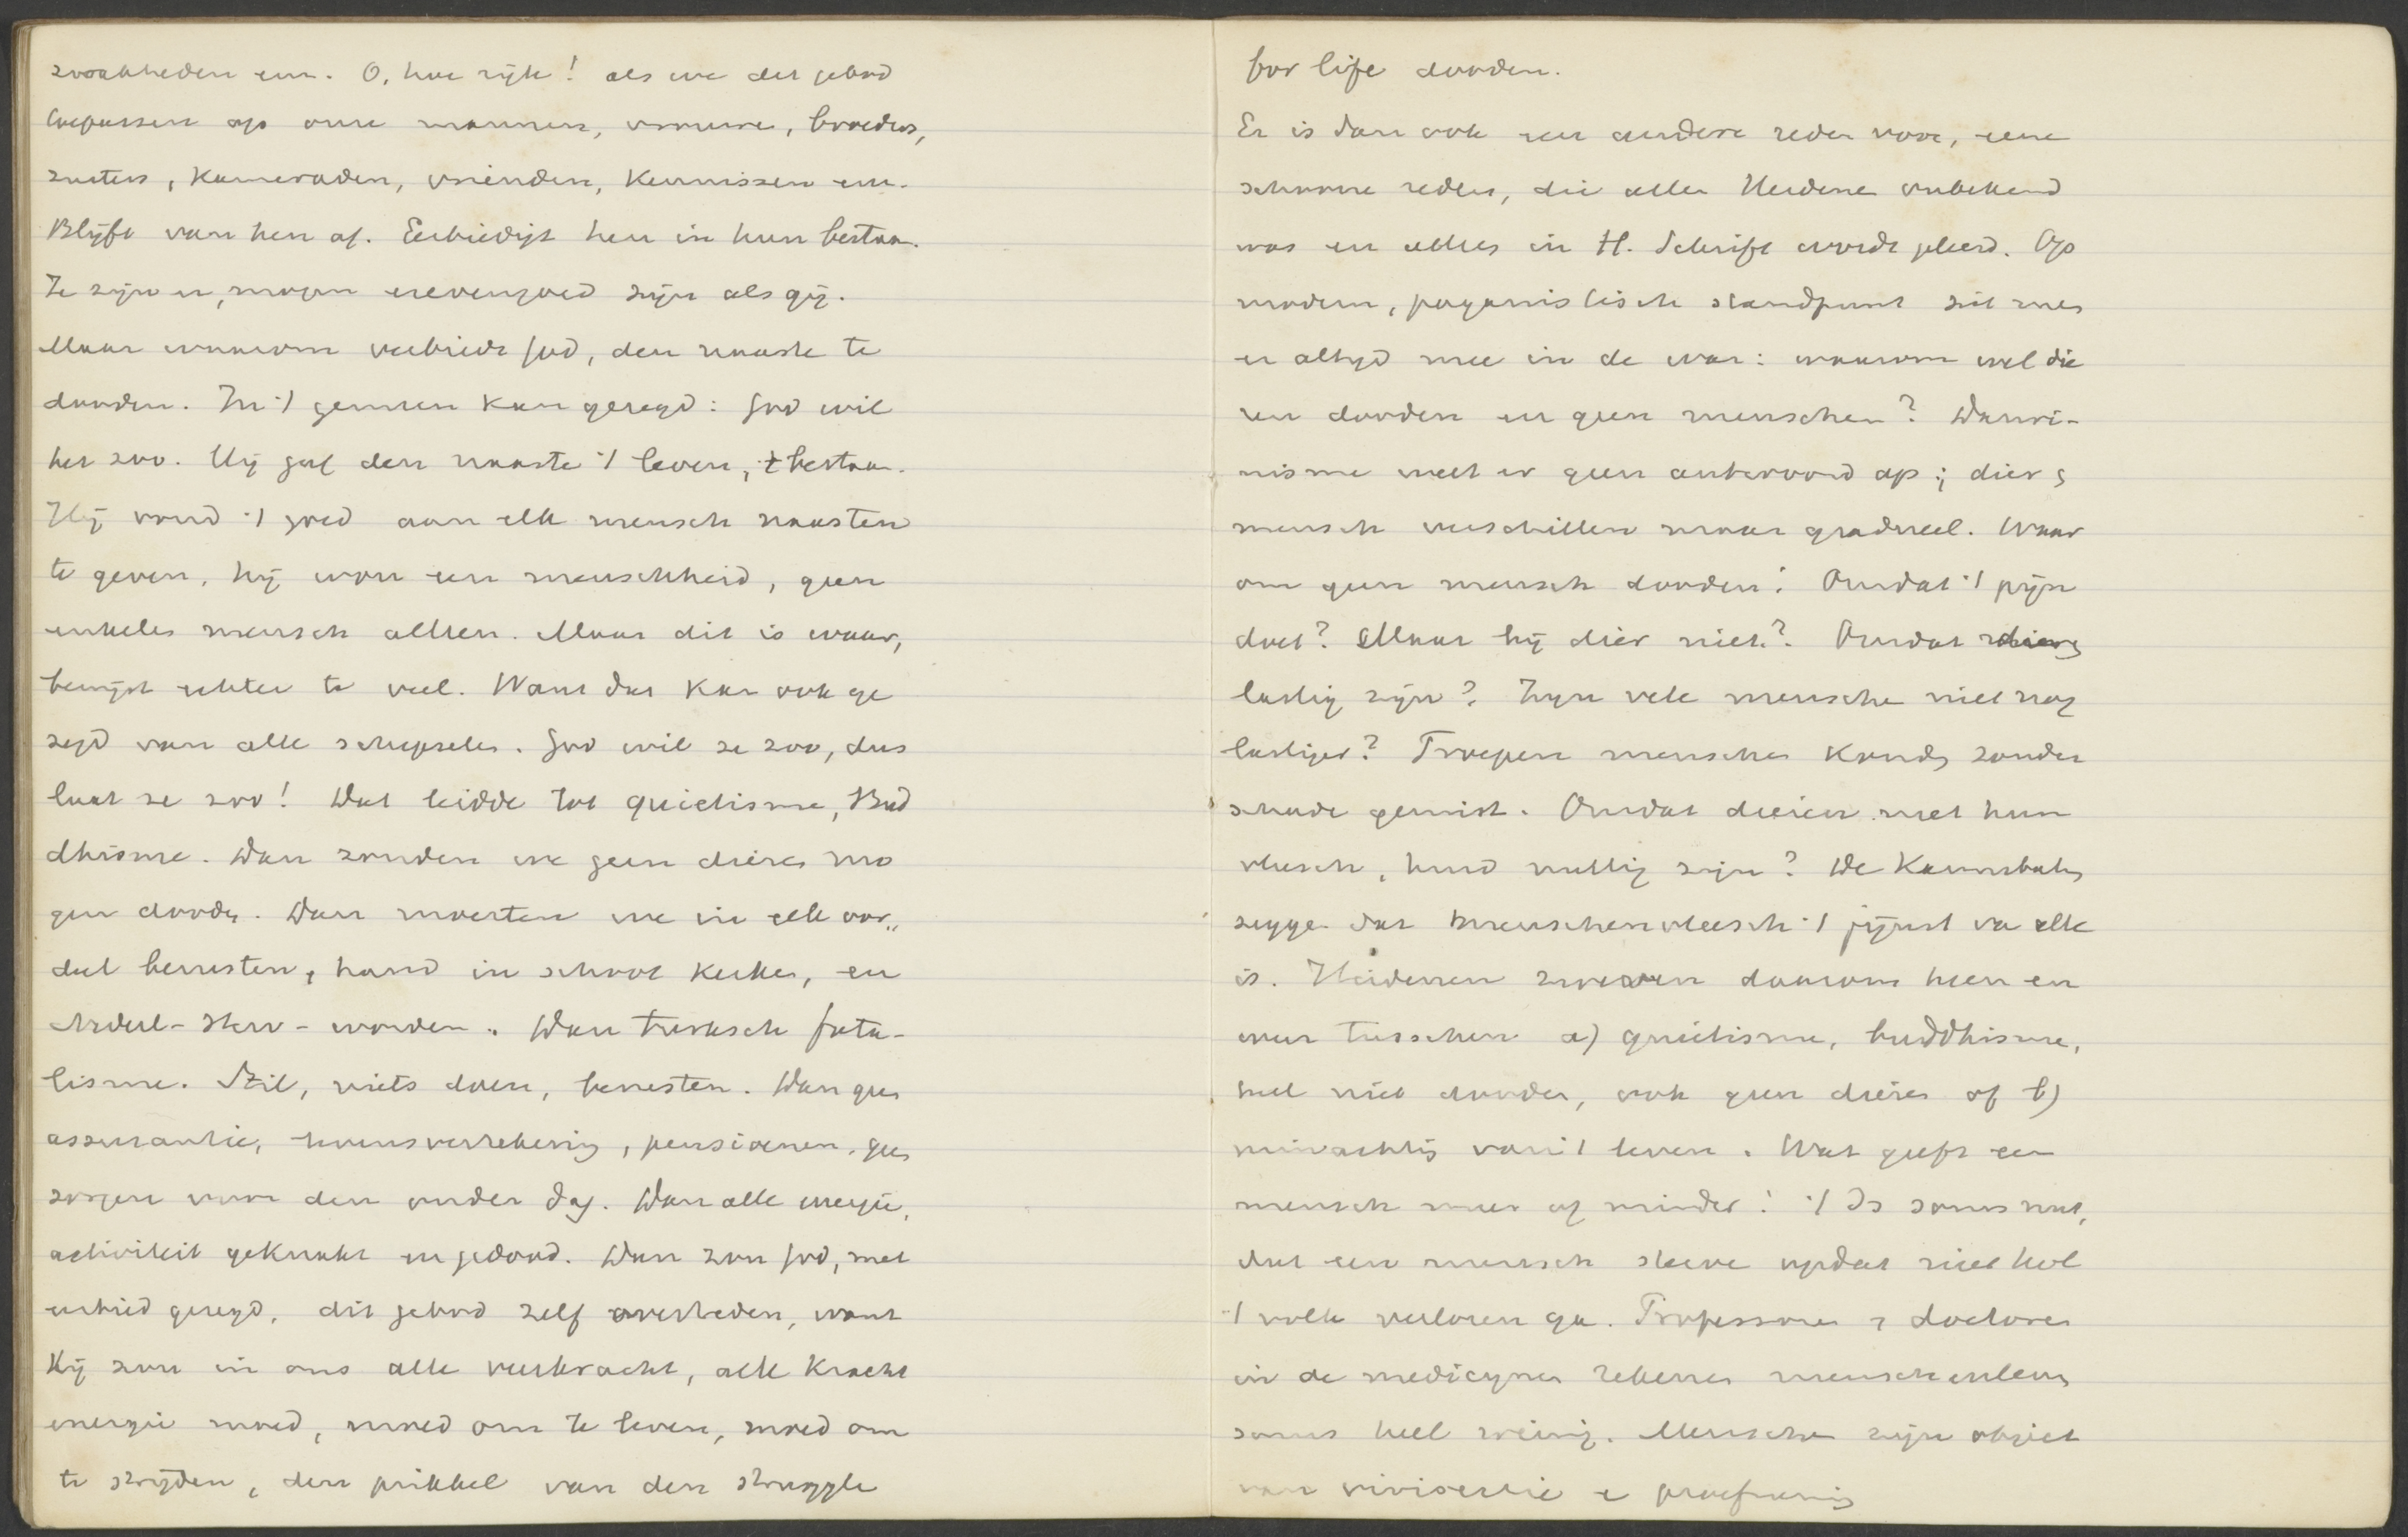 zwakheden enz. O, hoe rijk! als we dit gebod
toepassen op onze mannen, vrouwe, broeders,
zusters, kameraden, vrienden, kennissen enz.
Blijft van hen af. Eerbiedigt hen in hun bestaan.
Ze zijn er, mogen er evengoed zijn als gij.
Maar waarom verbiedt God, den naaste te
dooden. In 't gemeen kan gezegd: God wil
het zoo. Hij gaf den naaste 't leven, 't bestaan.
Hij vond 't goed aan elk mensch naasten
te geven, hij wou een menschheid, geen
enkelen mensch alleen. Maar dit is waar,
bewijst echter te veel. Want dat kan ook ge
zegd van alle schepselen. God wil ze zoo, dus
laat ze zoo! Dat leidde tot quietisme, Bud
dhisme. Dan zouden we geen dieren mo
gen dooden. Dan moesten we in elk oor„
deel berusten, hand in schoot kerken, en
 worden. Dan Turksch fata-
lisme. Stil, niets doen, berusten. Dan geen
assurantie, levensverzekering, pensioenen, geen
zorgen voor den ouden dag. Dan alle energie,
activiteit geknakt en gedood. Dan zou God, met
eerbied gezegd, dit gebod zelf overtreden, want
Hij zou in ons alle veerkracht, alle kracht
energie moed, moed om te leven, moed om
te strijden, den prikkel van den struggle
for life dooden.
Er is dan ook een andere reden voor, eene
schoone reden, die allen Heidene onbekend
was en alleen in H. Schrift wordt geleerd. Op
modern, paganistisch standpunt zit men
er altijd mee in de war: waarom wel die
ren dooden en geen menschen? Darwi-
nisme weet er geen antwoord op; dier &
mensch verschillen maar gradueel. Waar
om geen mensch dooden? Omdat 't pijn
doet? Maar bij dier niet? Omdat dieren
lastig zijn? Zijn vele mensche niet nog
lastiger? Troepen menschen konden zonder
schade gemist. Omdat dieren met hun
vleesch, huid nuttig zijn? De Kannibalen
zegge dat menschenvleesch 't fijnst va alle
is. Heidenen zweven daarom heen en
weer tusschen a) quietisme, buddhisme,
heel niet dooden, ook geen dieren of b)
minachting van 't leven. Wat geeft een
mensch meer of minder! 't Is soms nut,
dat een mensch sterve opdat niet heel
't volk verloren ga. Professoren & doctoren
in de medicynen rekenen menschenleven
soms heel weinig. Mensche zijn object
van vivisectie e proefneming